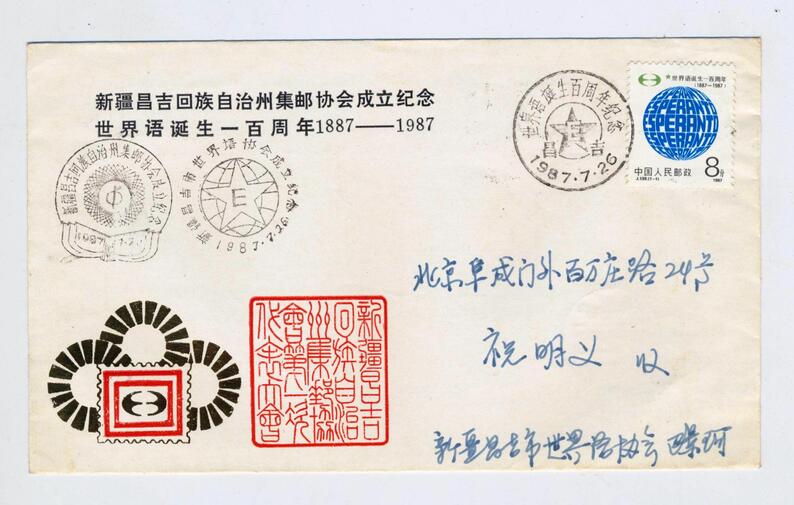 新疆昌吉回族自治州集邮协会成立纪念
世界语诞生一百周年1887——1987
世界语诞生百周年纪念
昌吉
1987.7.26
★世界语诞生一百周年
(1887—1987)
ESPERANTO
中国人民邮政
8分
J.139.(1-1)
1987
新疆昌吉回族自治州集邮协会成立纪念
1987.7.26
新疆昌吉市世界语协会成立纪念
E
1987.7.26
北京阜成门外百万庄路24号
祝明义 收
新疆昌吉市世界语协会
新疆昌吉
回族自治
州集邮协
会第一次
代表大会